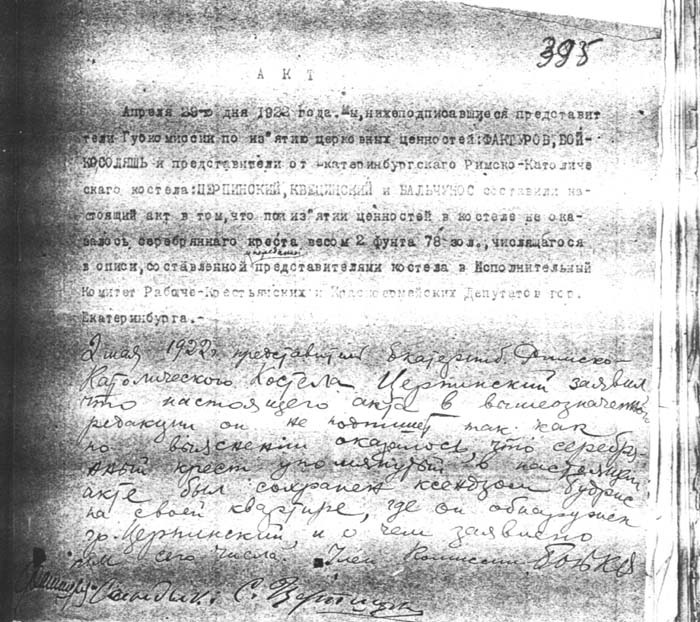 395
АКТ
Апреля 29-го дня 1922 года. Мы, нижеподписавшиеся представит
тели Губкомиссии по из"ятию церковных ценностей: ФАКТУРОВ, БОЙ-
КО, СОЛЯШЬ и представители от Екатеринбургскаго Римско-Католиче
скаго костела: ЦЕРПИНСКИЙ, КВЕЦИНСКИЙ и ВАЛЬЧУНОС составили на-
стоящий акт в том, что при из"ятии ценностей в костеле не ока-
залось серебряннаго креста весом 2 фунта 78 зол., числящагося
и переданной
в описи, составленной представителями костела в Исполнительный
Комитет Рабоче-Крестьянских и Красноармейских Депутатов гор.
Екатеринбурга.-
2 мая 1922г. представитель Екатеринб Римско-
Католического Костела Церпинский заявил
что настоящего акта в вышеозначенной
редакции он не подпишет так как
по выяснении оказалось, что серебря-
нный крест упомянутый в настоящем
акте был сохранен ксендзом Будрис
на своей квартире, где он обнаружен
гр. Церпинский, и о чем заявлено
им сего числа. Член Комиссии Бойко
С. Церпицкий